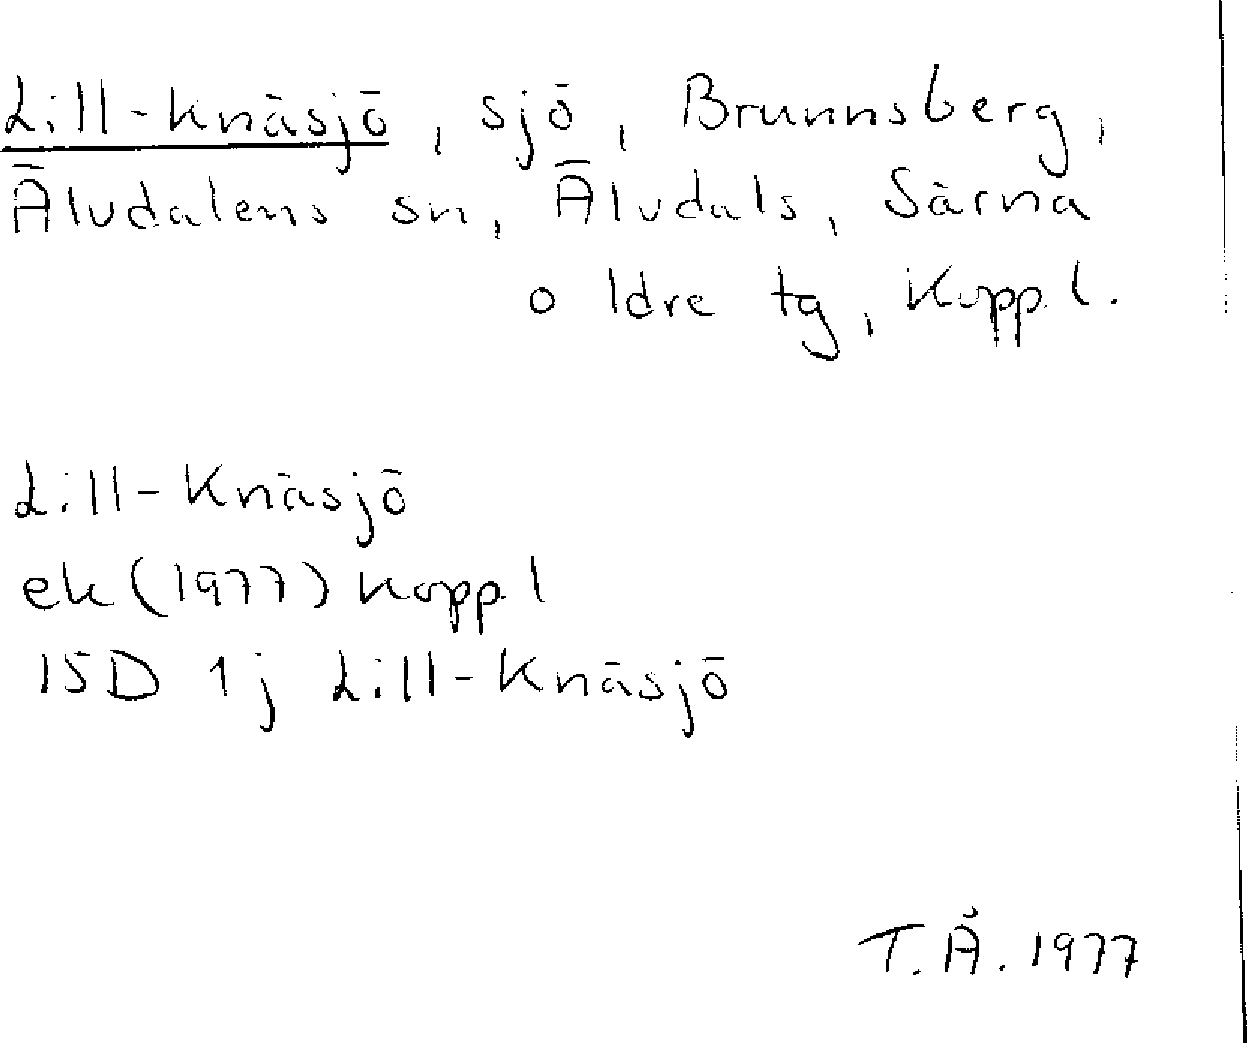 Lill-Knäsjö, sjö, Brunnsberg,
Älvdalens sn, Älvdals, Särna
o Idre tg, Kopp l.
Lill-Knäsjö
ek (1977) Kopp l
15D 1j Lill-Knäsjö
T.Å. 1977